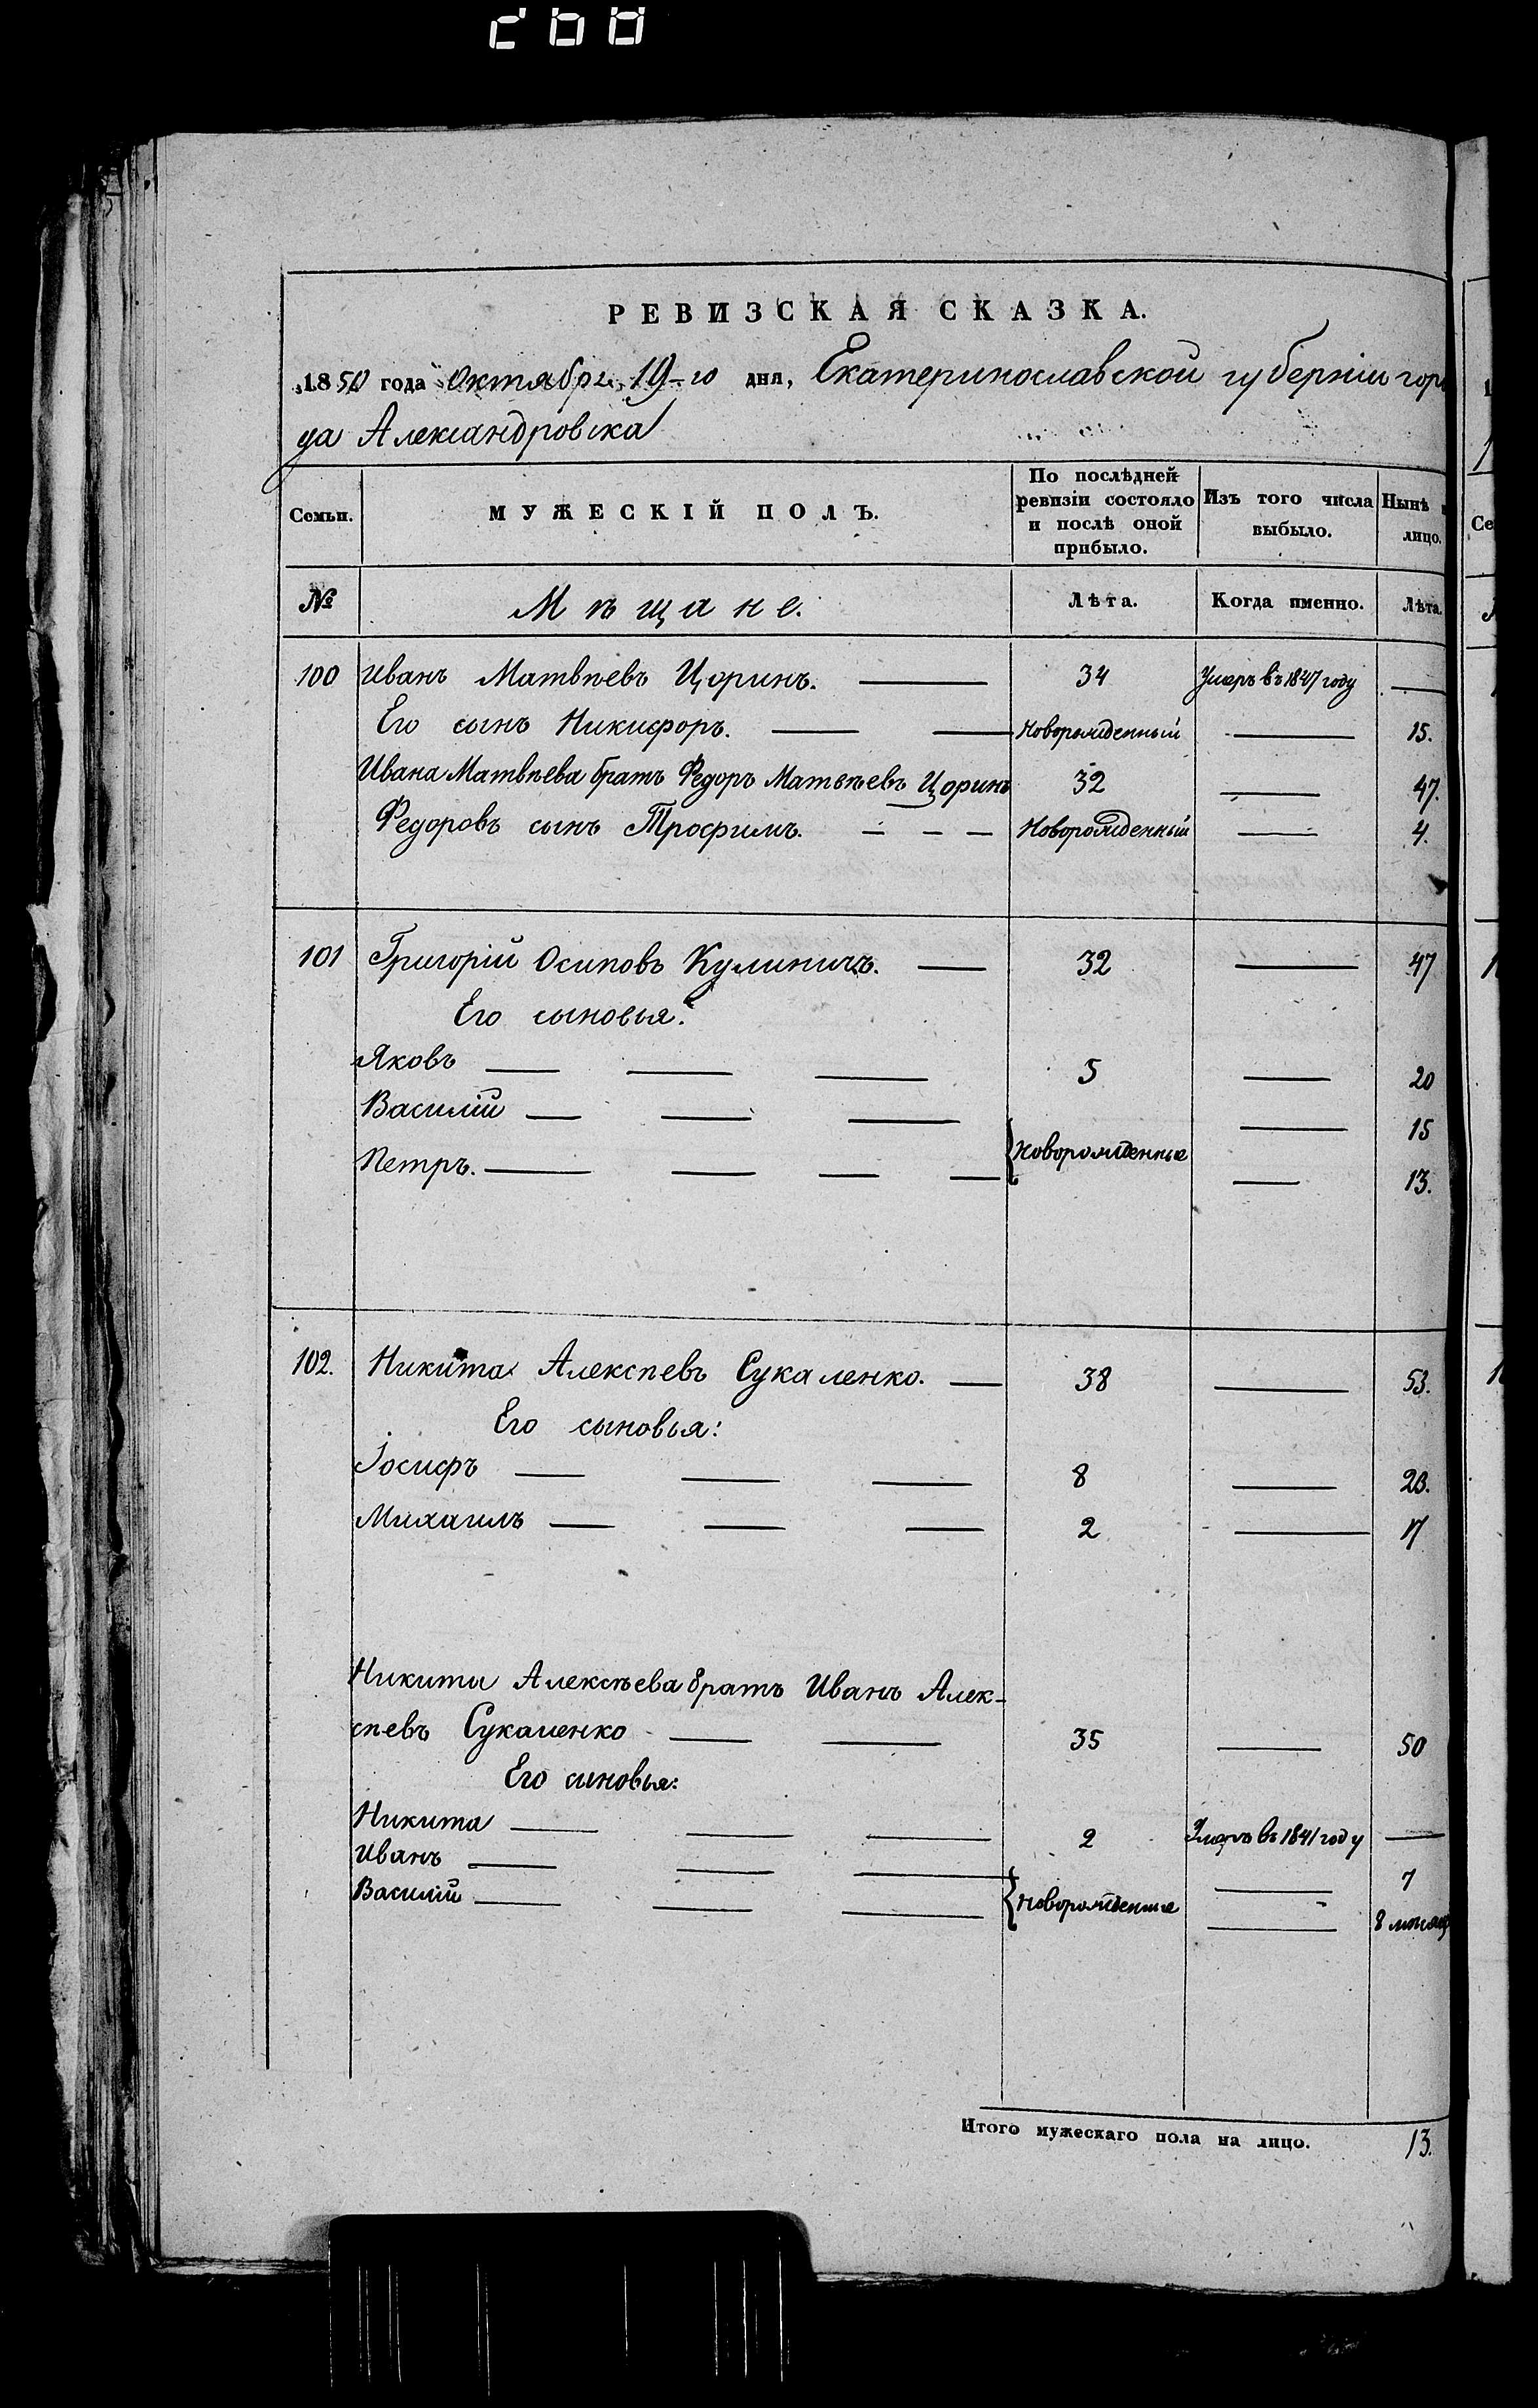 РЕВИЗСКАЯ СКАЗКА.
1850 года Октября 19-го дня, Екатеринославской губерніи горо
да Александровска
Семьи.
МУЖЕСКІЙ ПОЛЪ.
По послѣдней ревизіи состояло и послѣ оной прибыло.
Изъ того числа выбыло.
Нынѣ
лицо.
№ Мѣщане. Лѣта. Когда именно. Лѣта.
100 Иванъ Матвѣевъ Цоринъ. — 34 Умеръ въ 1847 году —
Его сынъ Никифоръ. — — Новорожденный — 15.
Ивана Матвѣева братъ Федоръ Матвѣевъ Цоринъ 32 — 47.
Федоровъ сынъ Трофимъ. — — — Новорожденный — 4.
101 Григорій Осиповъ Кулиничъ. — 32 — 47
Его сыновья:
Яковъ — — — 5 — 20
Василій — — — — 15
Новорожденные
Петръ. — — — — — 13.
102. Никита Алексѣевъ Сукаленко. — 38 — 53.
Его сыновья:
Іосифъ — — — 8 — 23.
Михаилъ — — — 2 — 17
Никиты Алексѣева братъ Иванъ Алек-
сѣевъ Сукаленко — — 35 — 50
Его сыновья:
Никита — — — 2 Умеръ въ 1841 году —
Иванъ — — — — 7
Василій — — — Новорожденные — 8 мѣсяц
Итого мужескаго пола на лицо. 13.